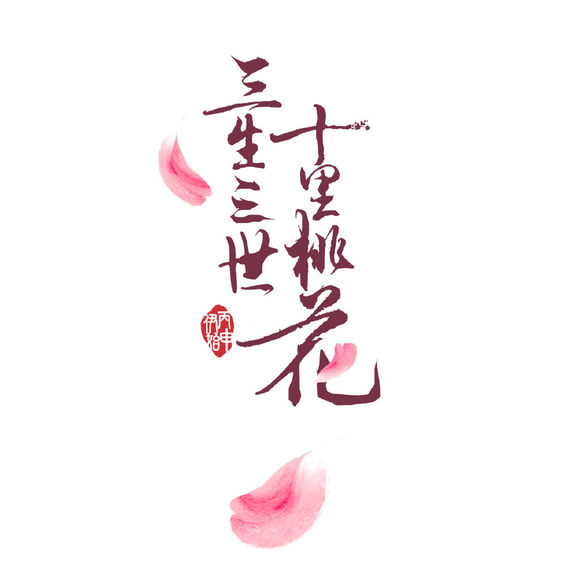 三生三世
十里桃花
丙申
伊始